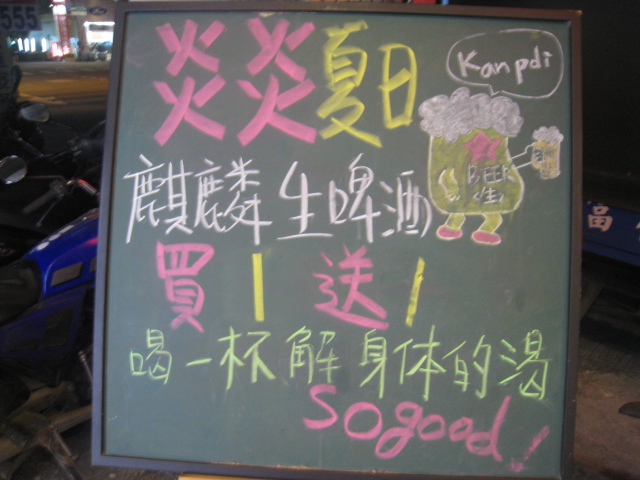 555
炎炎夏日
Kanpdi
BEER
生
麒麟生啤酒
買1送1
喝一杯解身体的渴
so good!
富